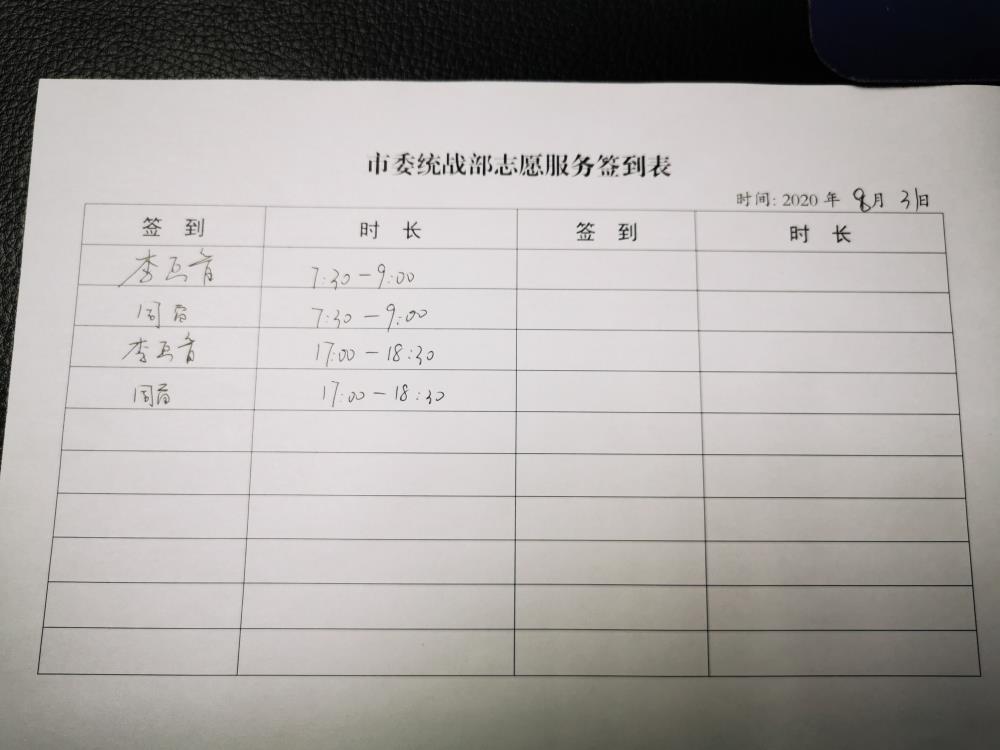 市委统战部志愿服务签到表
时间: 2020 年 8月 31日
签 到 时 长 签 到 时 长
7:30-9:00
周 7:30-9:00
17:00-18:30
周 17:00-18:30